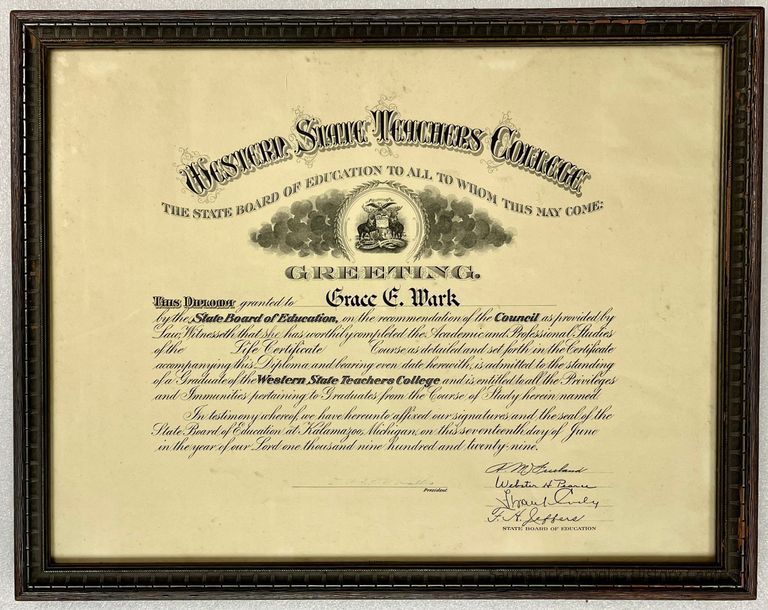 WESTERN STATE TEACHERS COLLEGE
THE STATE BOARD OF EDUCATION TO ALL TO WHOM THIS MAY COME:
GREETING.
THIS DIPLOMA granted to Grace E. Wark
by the State Board of Education, on the recommendation of the Council as provided by
Law, Witnesseth that she has worthily completed the Academic and Professional Studies
of the Life Certificate Course as detailed and set forth in the Certificate
accompanying this Diploma and bearing even date herewith, is admitted to the standing
of a Graduate of the Western State Teachers College and is entitled to all the Privileges
and Immunities pertaining to Graduates from the Course of Study herein named.
In testimony whereof, we have hereunto affixed our signatures and the seal of the
State Board of Education at Kalamazoo, Michigan, on this seventeenth day of June
in the year of our Lord one thousand nine hundred and twenty-nine.
President
Webster H. Pearce
Frank Cody
F. A. Jeffers
STATE BOARD OF EDUCATION